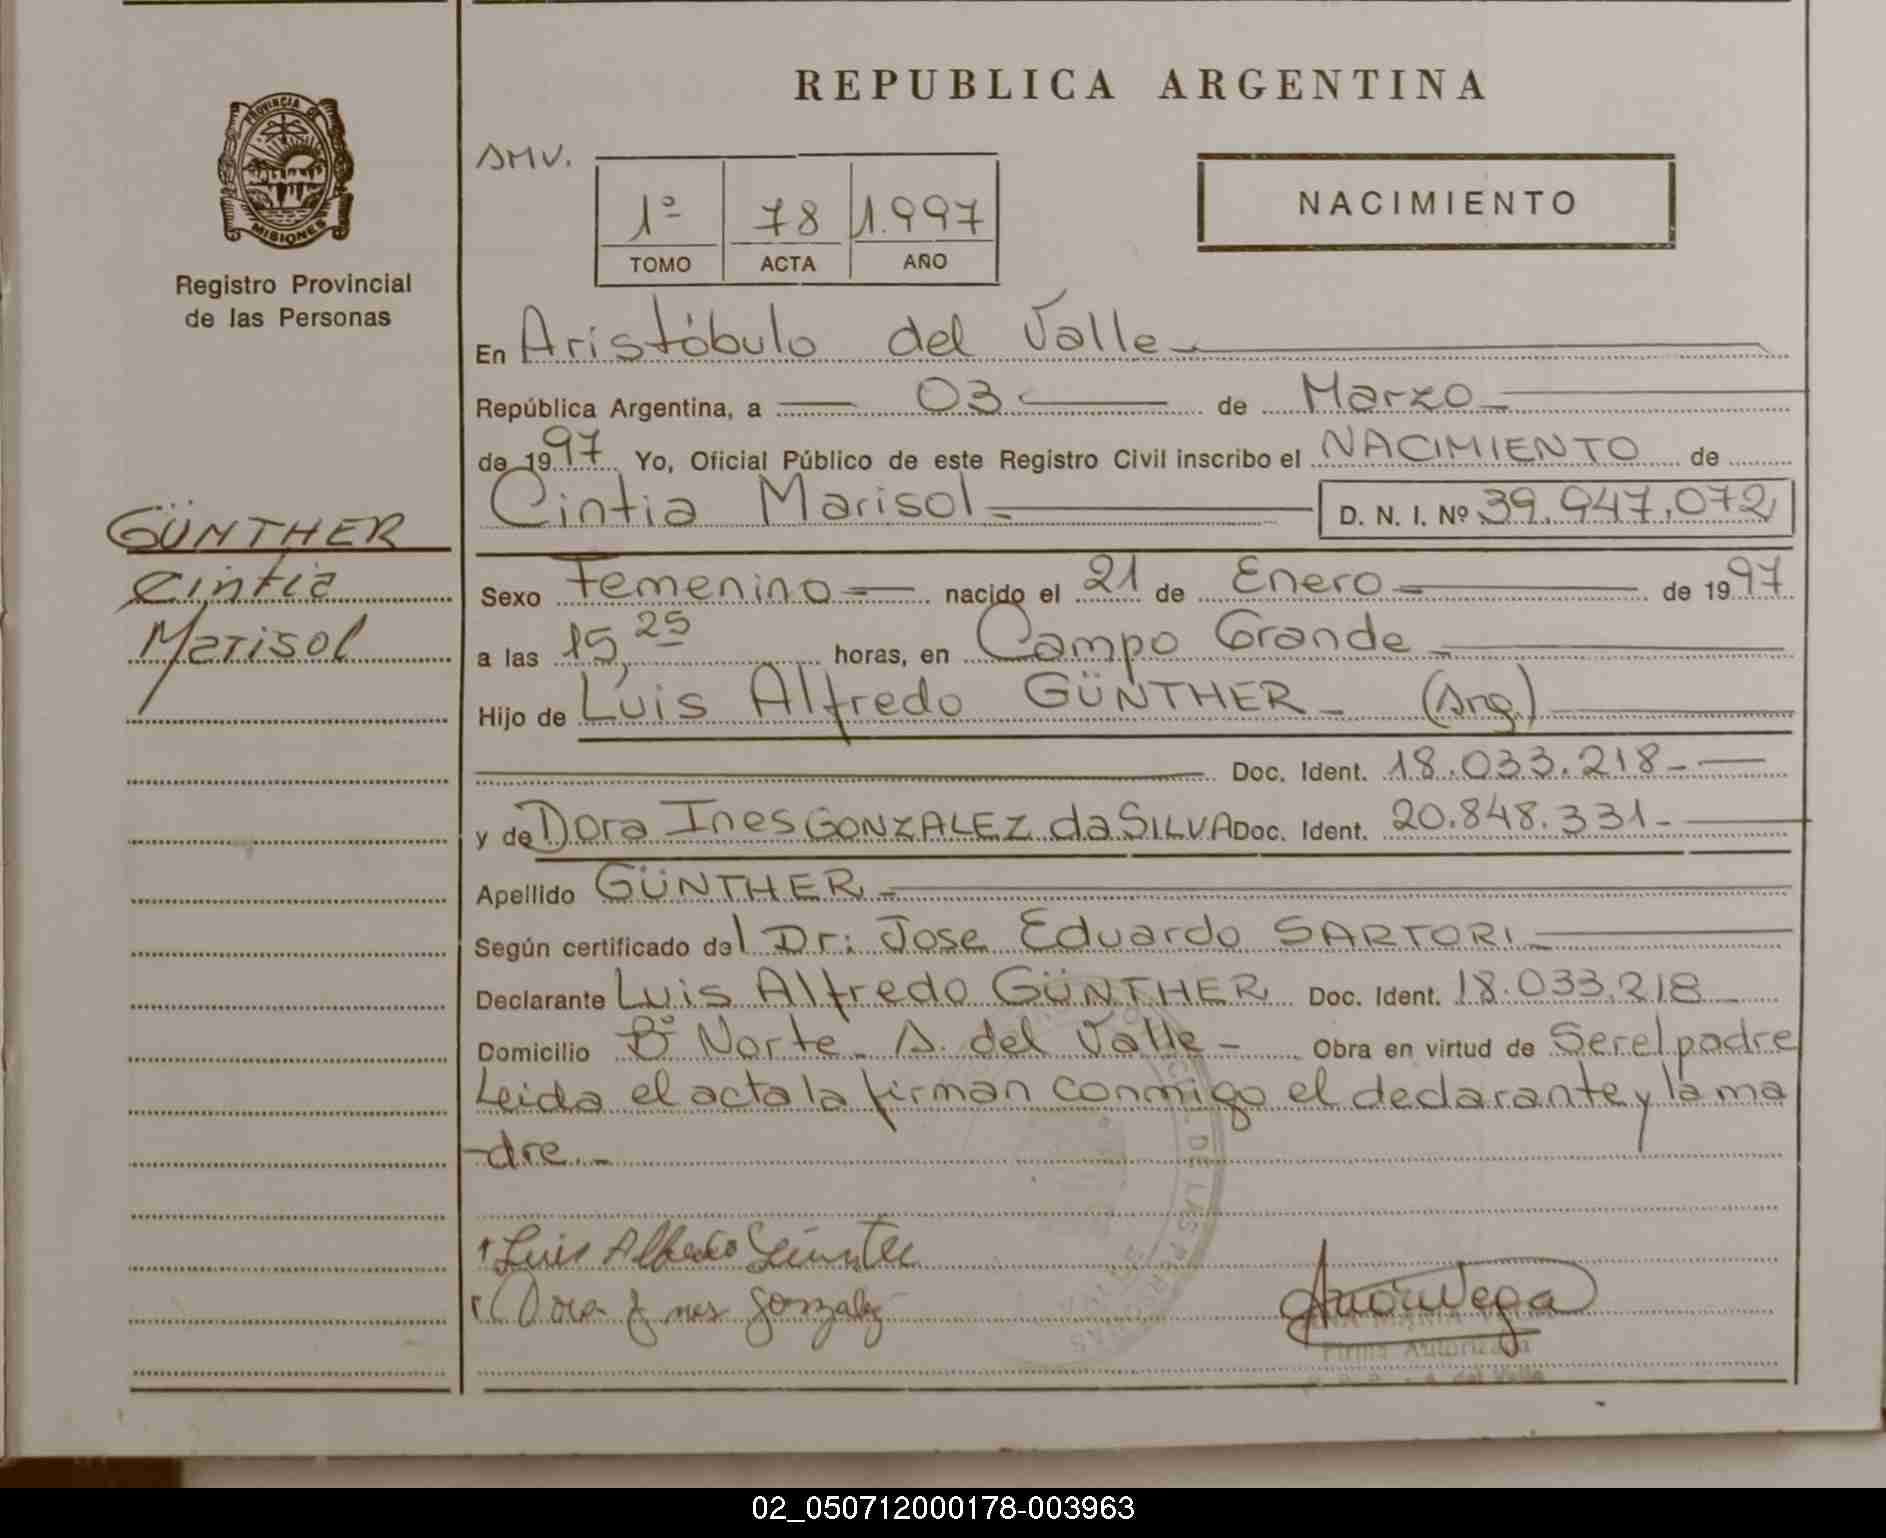 REPUBLICA ARGENTINA
PROVINCIA DE
MISIONES
Registro Provincial
de las Personas
AMV.
1º 78 1.997
TOMO ACTA AÑO
NACIMIENTO
En Aristóbulo del Valle
República Argentina, a 03 de Marzo
de 1997 Yo, Oficial Público de este Registro Civil inscribo el NACIMIENTO de
Cintia Marisol D. N. I. Nº 39.947.072
GÜNTHER
Cintia
Marisol
Sexo Femenino nacido el 21 de Enero de 1997
a las 15,25 horas, en Campo Grande
Hijo de Luis Alfredo GÜNTHER (Arg.)
Doc. Ident. 18.033.218
y de Dora Ines GONZALEZ da SILVA Doc. Ident. 20.848.331
Apellido GÜNTHER
Según certificado del Dr: Jose Eduardo SARTORI
Declarante Luis Alfredo GÜNTHER Doc. Ident. 18.033.218
Domicilio Bº Norte A. del Valle Obra en virtud de Ser el padre
Leida el acta la firman conmigo el declarante y la ma
-dre.
Luis
Dora Ines Gonzalez
Firma Autorizada
del Valle
02_050712000178-003963